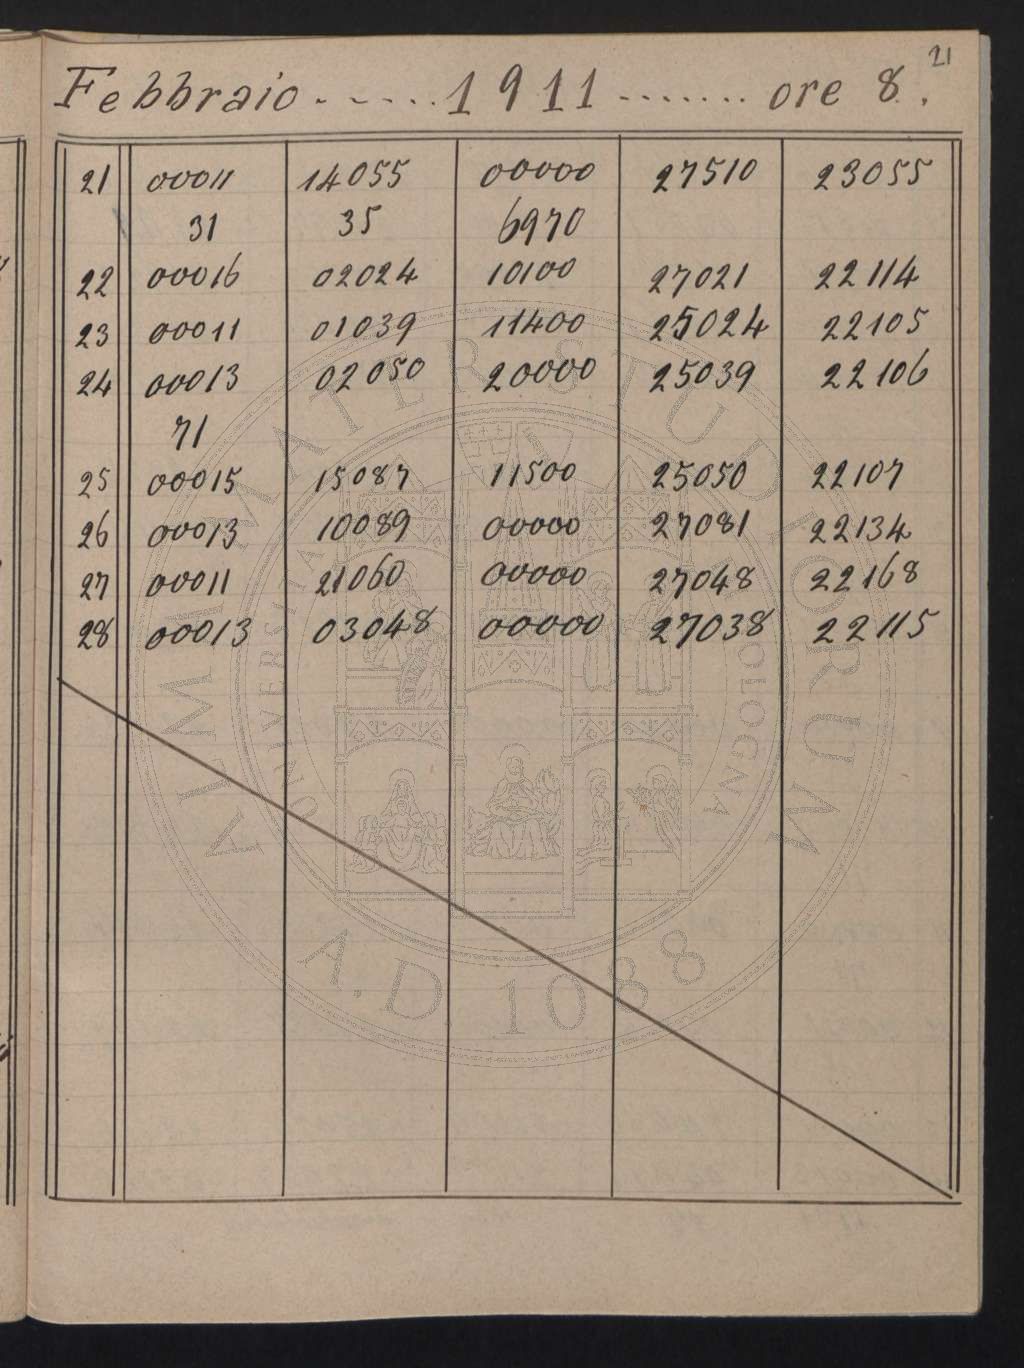 21
Febbraio ......... 1911 ........ ore 8.
21 00011 14055 00000 27510 23055
31 35 6970
22 00016 02024 10100 27021 22114
23 00011 01039 11400 25024 22105
24 00013 02050 20000 25039 22106
71
25 00015 15087 11500 25050 22107
26 00013 10089 00000 27081 22134
27 00011 21060 00000 27048 22168
28 00013 03048 00000 27038 22115
ALMA MATER STUDIORUM
UNIVERSITÀ DI BOLOGNA
A.D. 1088